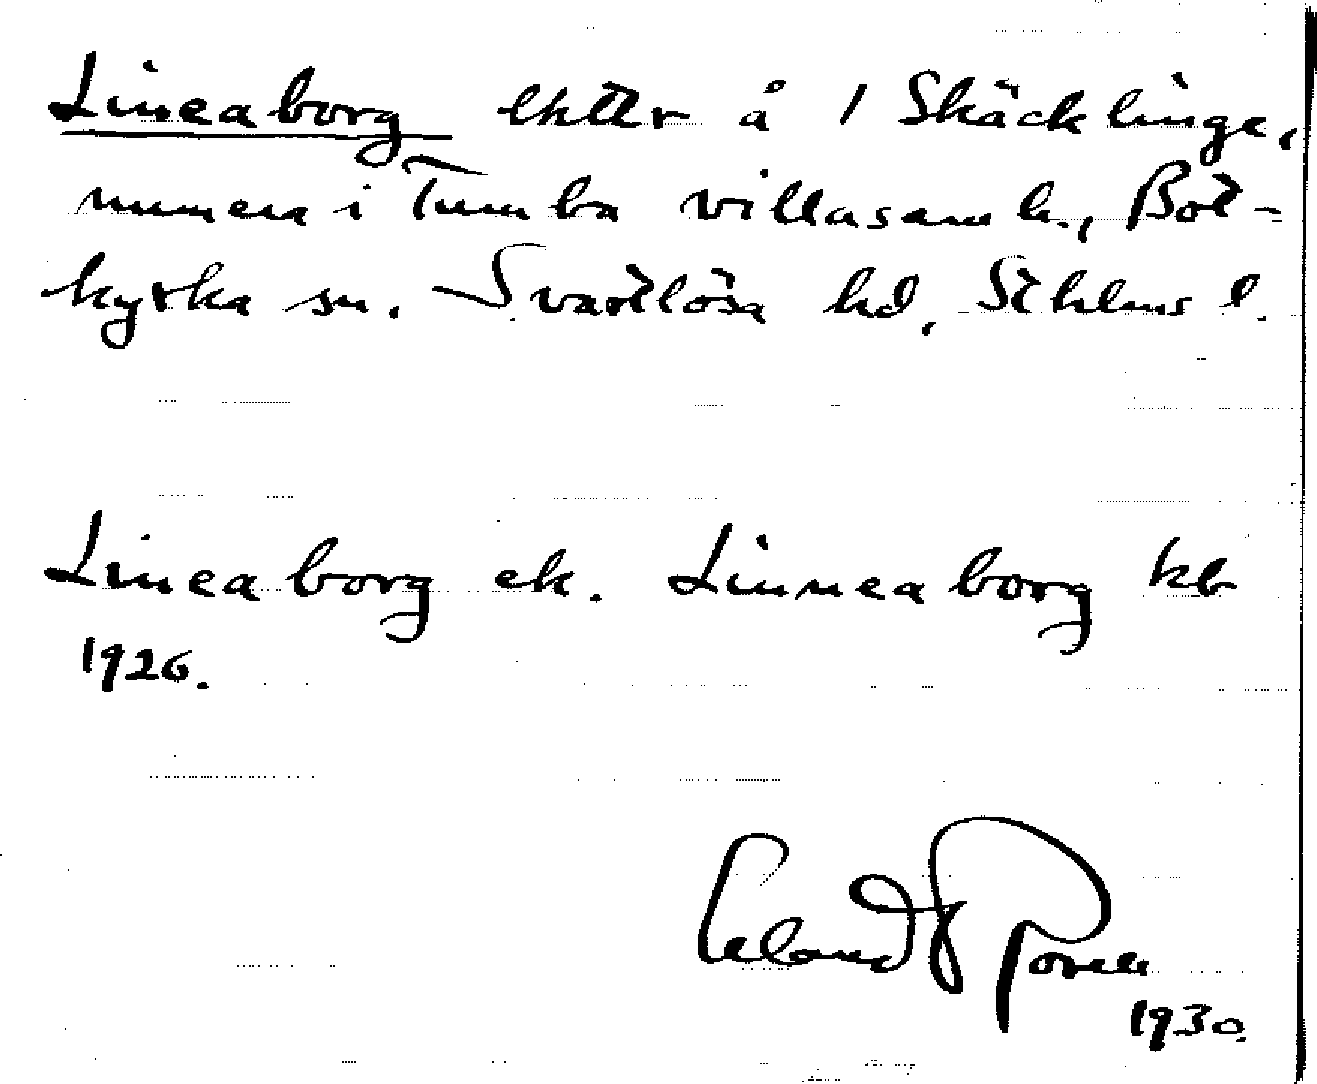 Lineaborg lht å 1 Skäcklinge,
numera i Tumba villasamh., Bot-
kyrka sn. Svartlösa hd, Sthlms l.
Lineaborg ek. Linneaborg kb
1926.
1930.